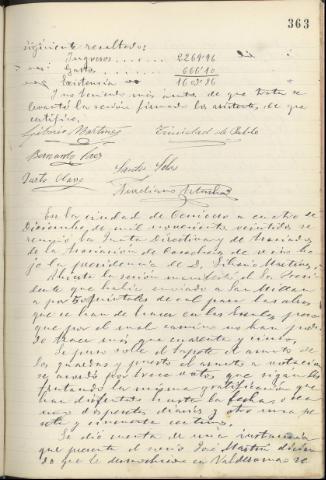 363
siguiente resultado:
Ingresos . . . . . 2269'96
Gastos . . . . . 666'10
Existencia 1603'86
Y no habiendo más asuntos de que tratar se
levantó la sesión firmando los asistentes, de que
certifico.
Liborio Martinez Trinidad de Pablo
Bernardo Saez
Justo Olave Santos
Aureliano
En la ciudad de Cenicero a cuatro de
Diciembre de mil novecientos veintidos se
reunió la Junta Directiva y de Asociados
de la Asociación de Cosecheros de vino ba
jo la presidencia de D. Liborio Martinez.
Abierta la sesión manifestó el Sr. Presi
dente que había enviado a San
a por 50 quintales de cal para las obras
que se han de hacer en las Escuelas pero
que por el mal camino no han podi
do traer más que cuarenta y cinco.
Se puso sobre el tapete el asunto de
los guardas y puesto el asunto a votación
acordó por trece votos, que sigan dis
frutando la misma gratificación que
han disfrutado hasta la fecha o sea
unos dos pesetas diarias y otro una pe
seta y cincuenta centimos.
Se dió cuenta de una instancia
que presenta el socio José Martin dicien
do que le